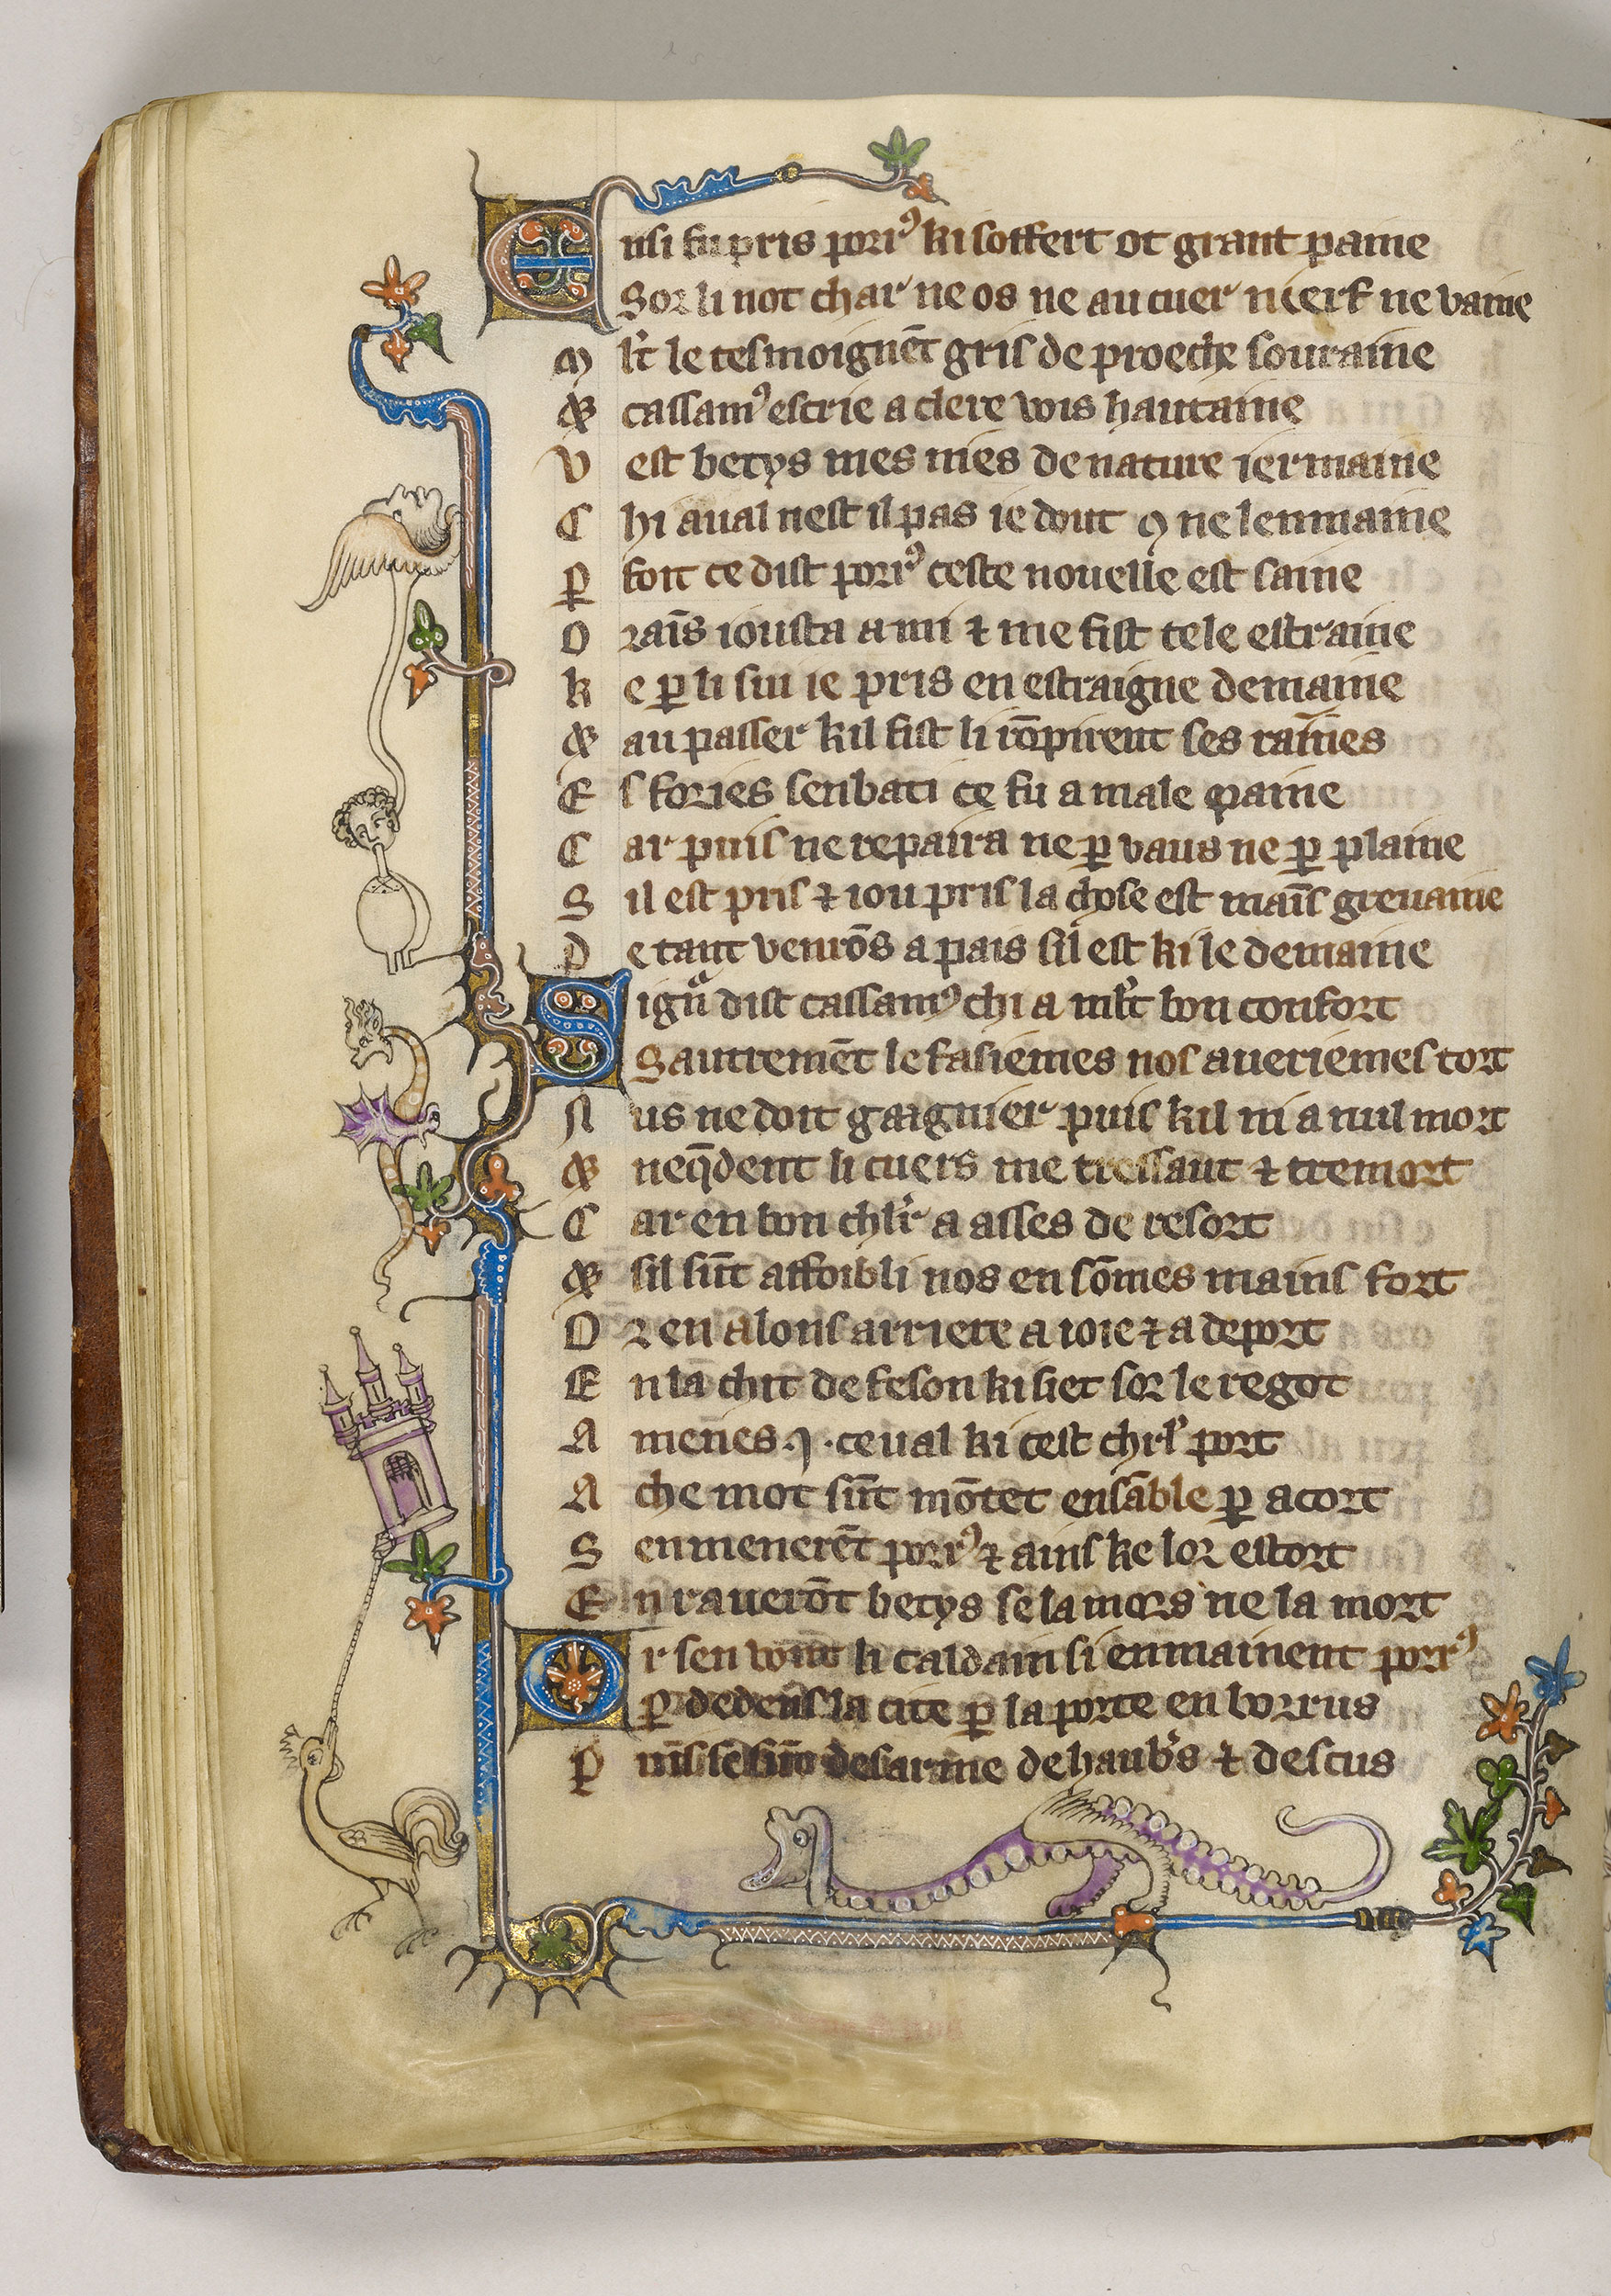 Ensi fu pris porꝰ ki soffert ot grant paine
Sor li not char ne os ne au cuer nierf ne vaine
M lt̛ le tesmoignēt gris de proeche souraine
Et cassamꝰ escrie a clere vois hautaine
V est betys mes nies de nature iermaine
C hi aual nest il pas ie dout ꝯ ne lenmaine
P foit ce dist porrꝰ ceste nouelle est saine
O raīs iousta a mi ⁊ me fist tele estraine
K e ꝑ li sui ie pris en estraigne demaine
Et au passer kil fist li rōpirent ses raines
E s fories senbati ce fu a male paine
C ar puis ne repaira ne ꝑ vaus ne ꝑ plaine
S il est pris ⁊ iou pris la chose est maīs greuaine
D e tant venrōs a pais sil est ki le demaine
Signᷓ dist cassamꝰ chi a mlt̛ bon confort
Sautremēt le fasiemes nos aueriemes tort
N us ne doit gaignier puis kil ni a nul mort
Et neq̄dent li cuers me tressaut ⁊ tremort
C ar en bon chlr̛ a asses de resort
Et sil sūt affoibli nos en sōmes mains fort
O r en alons arriere a ioie ⁊ a deport
E n la chit de feson ki siet sor le regot
A menes .j. ceual ki cest chrl̛ port
A che mot sūt mōtet ensāble ꝑ acort
S enmenerēt porrꝰ ⁊ ains ke lor estort
E n rauerōt betys se la mors ne la mort
Or sen vont li caldain si enmainent porrꝰ
ꝑ dedens la cite ꝑ la porte en borrus
P uis se sūt desarme de haub̛s ⁊ descus